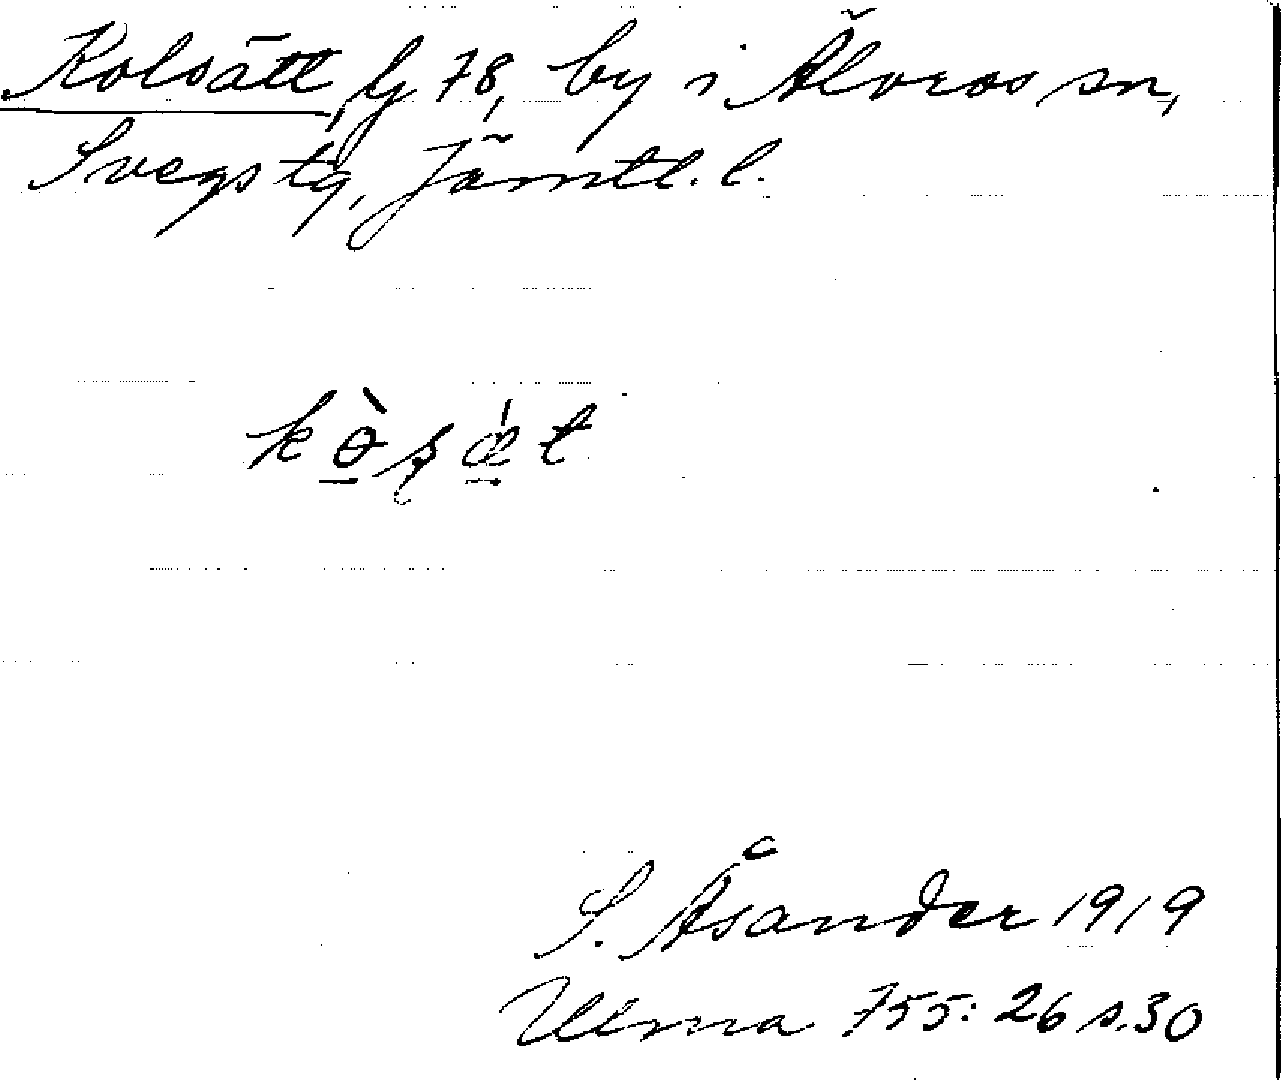 Kolsätt, G 78, by i Älvros sn,
Svegs tg, Jämtl. l.
kòṣæ̀t
S. Åsander 1919
Ulma 755: 26 s. 30